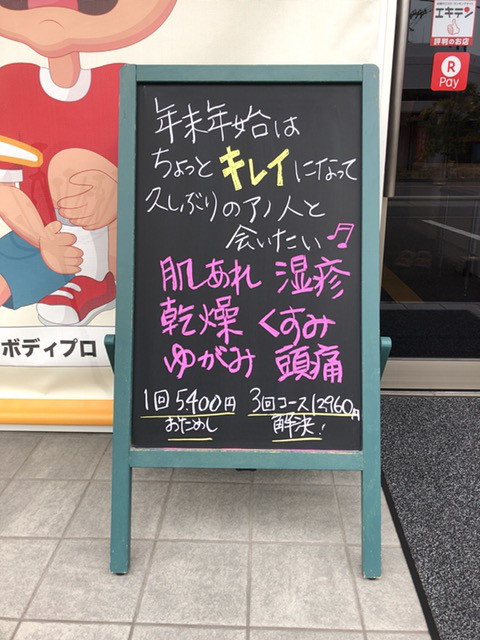 年末年始は
ちょっとキレイになって
久しぶりのアノ人と
会いたい♬
肌あれ 湿疹
乾燥 くすみ
ゆがみ 頭痛
1回 5,400円 3回コース12,960円
おためし 解決!
ボディプロ
エキテン
評判のお店
R
Pay